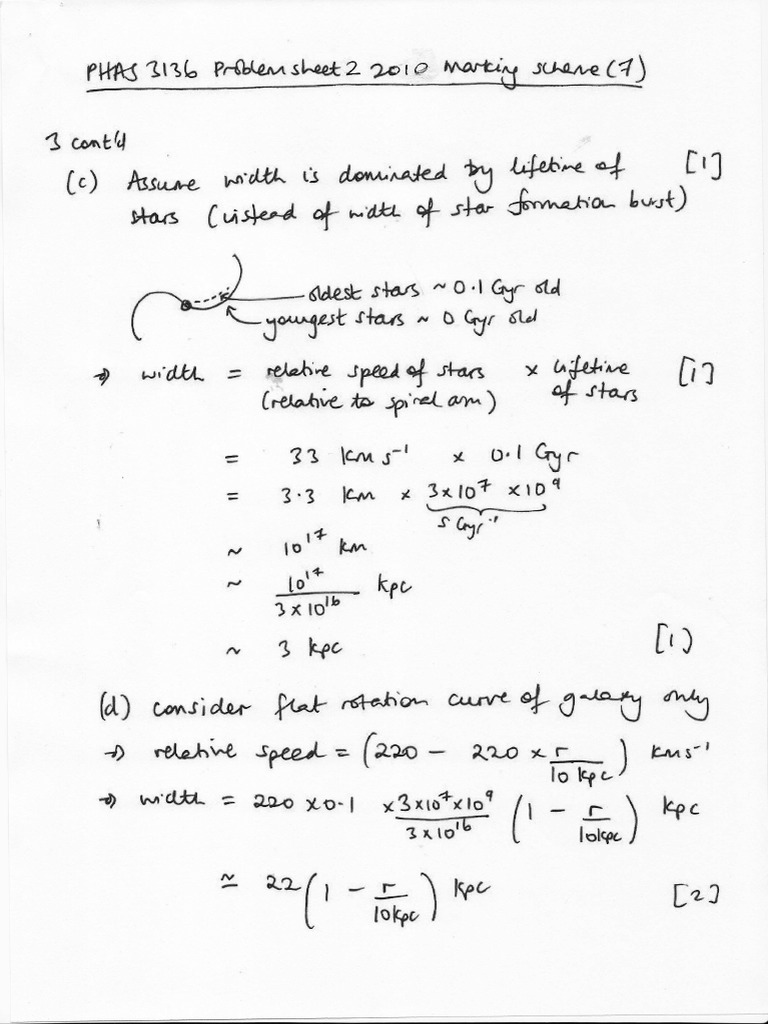 PHAS 3136 Problem sheet 2 2010 Marking scheme (7)
3 cont'd
(c) Assume width is dominated by lifetime of [1]
stars (instead of width of star formation burst)
oldest stars ~ 0.1 Gyr old
youngest stars ~ 0 Gyr old
⇒ width = relative speed of stars × lifetime [1]
(relative to spiral arm) of stars
= 33 km s⁻¹ × 0.1 Gyr
= 3.3 km × 3×10⁷ ×10⁹
s Gyr⁻¹
~ 10¹⁷ km
~ 10¹⁷ kpc
3×10¹⁶
~ 3 kpc [1]
(d) consider flat rotation curve of galaxy only
⇒ relative speed = (220 − 220 × r ) km s⁻¹
10 kpc
⇒ width = 220 ×0.1 ×3×10⁷×10⁹ (1 − r ) kpc
3×10¹⁶ 10kpc
≃ 22 (1 − r ) kpc [2]
10kpc